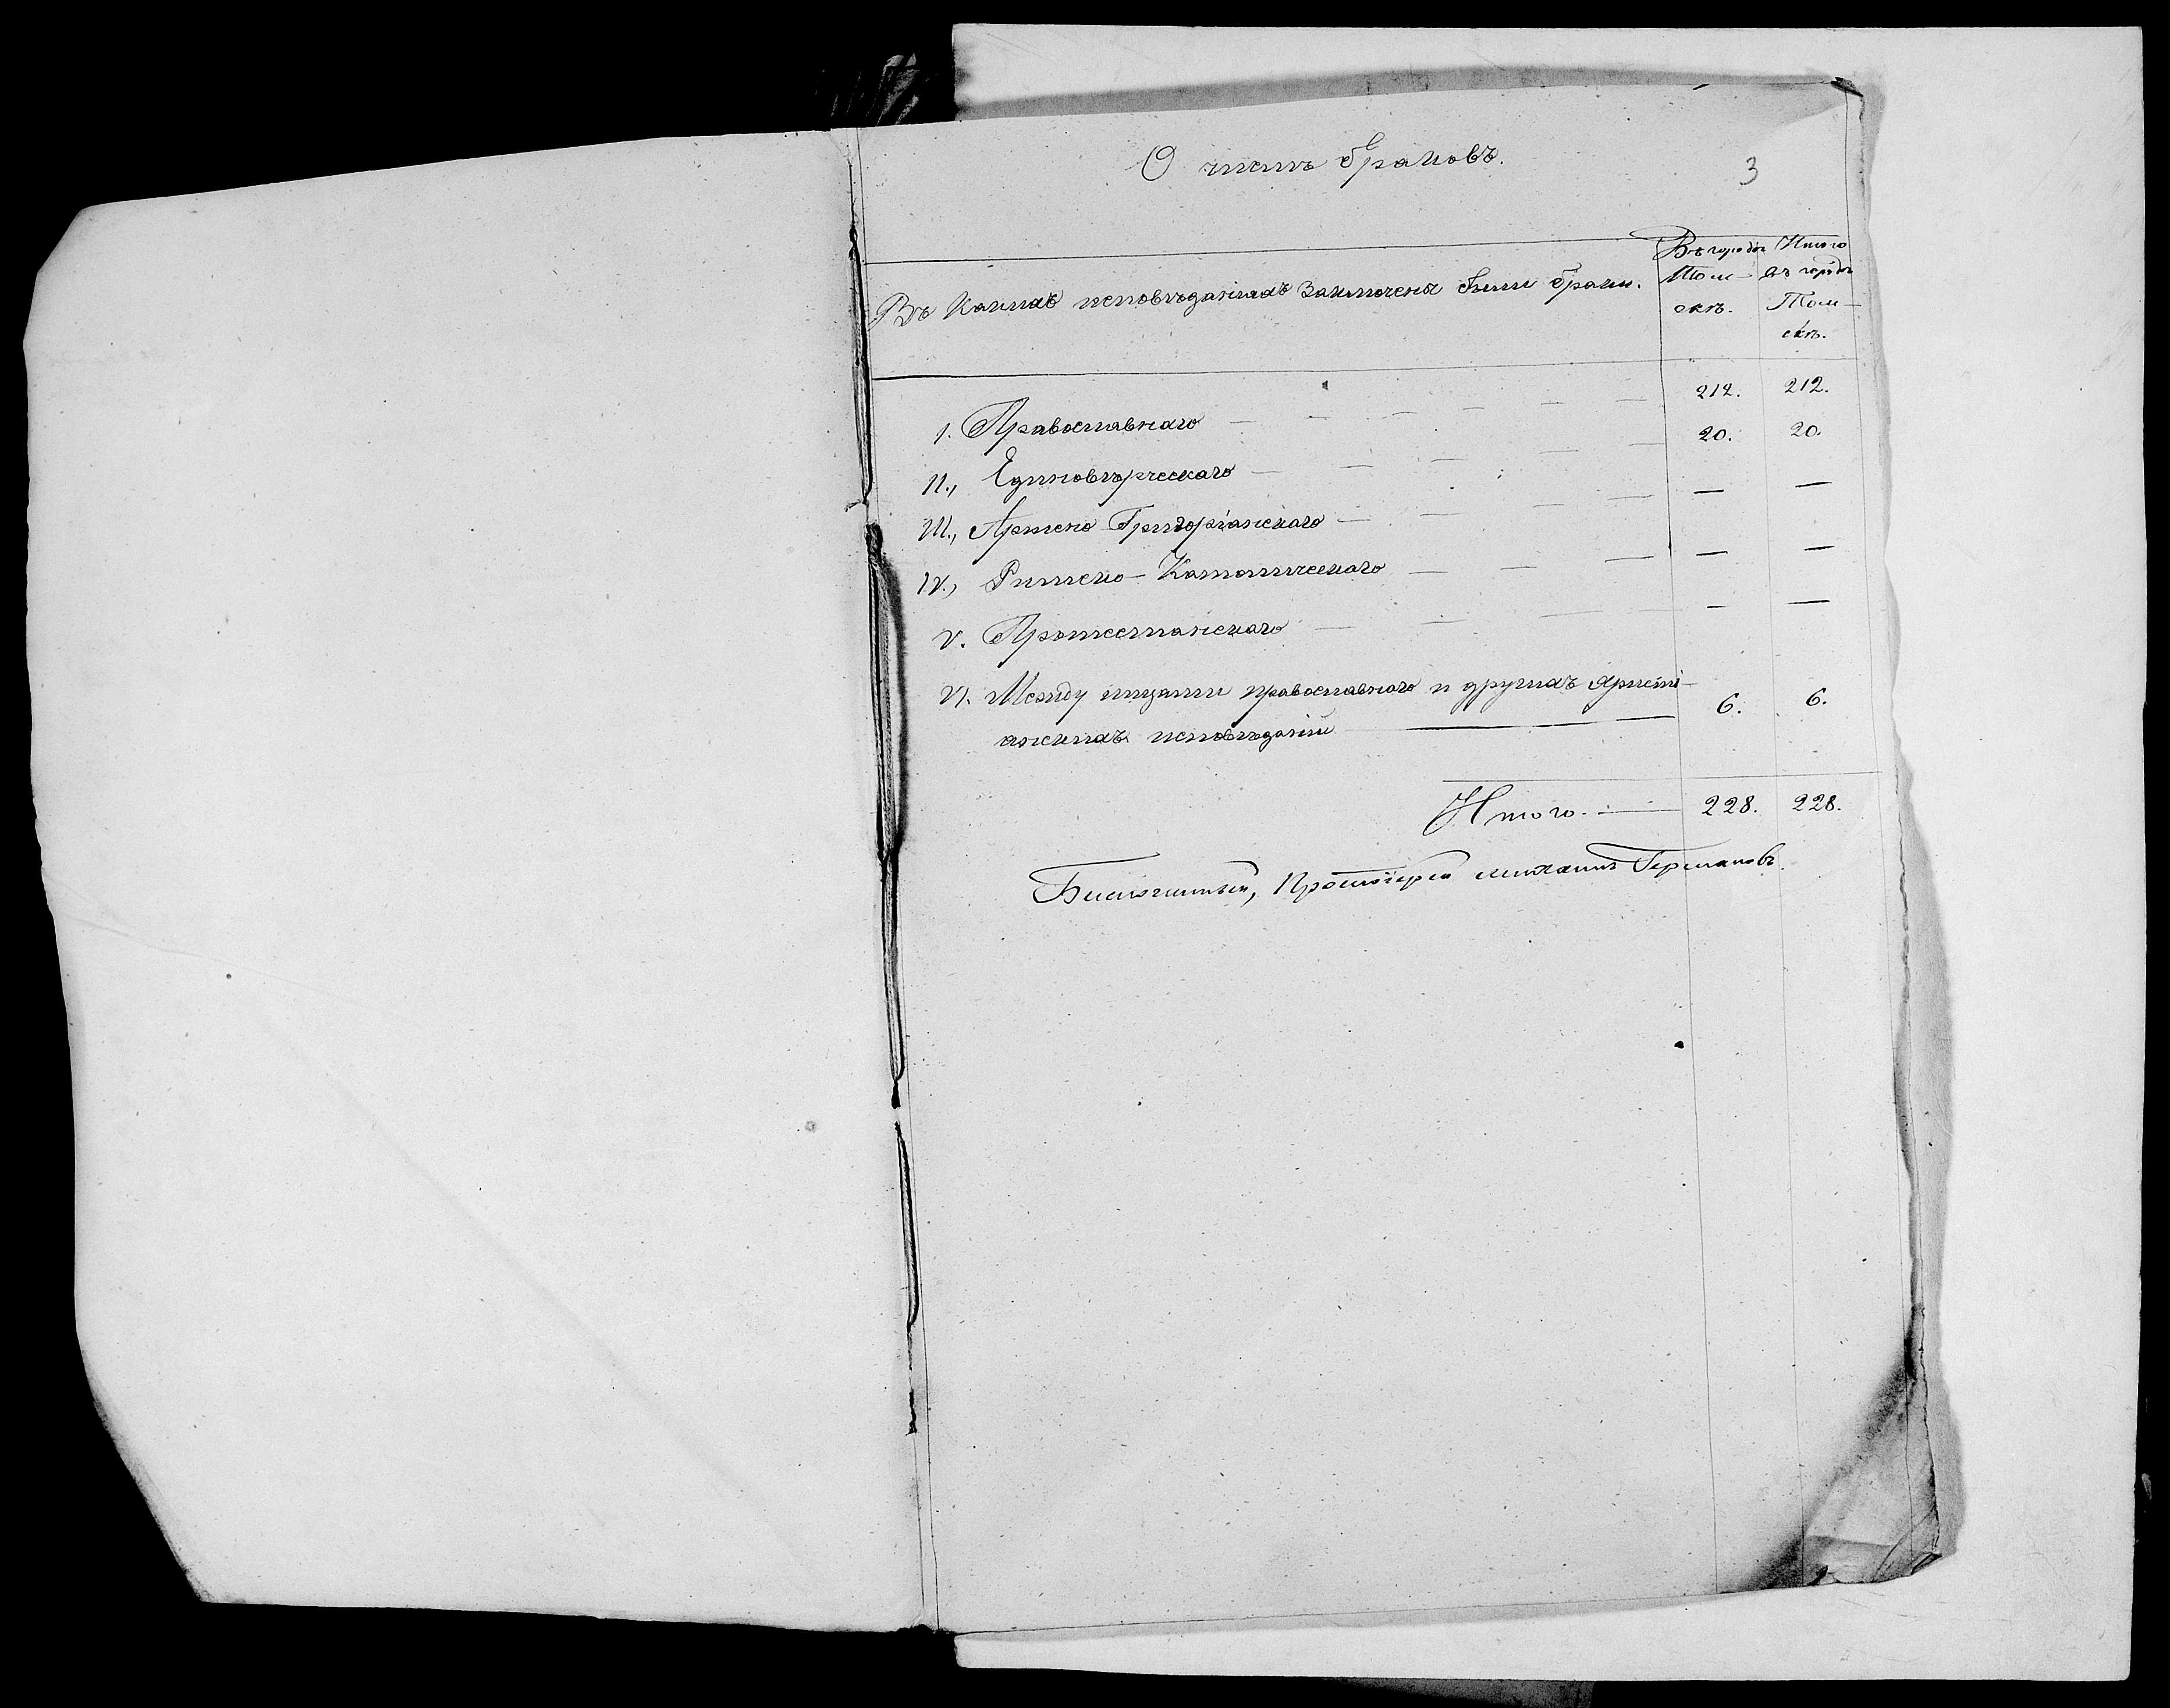 О числѣ браковъ.
3
Въ какихъ исповѣданіяхъ заключены были браки.
Въ городѣ
Том-
скѣ.
Итого
въ городѣ
Том-
скѣ.
I. Православнаго — — — — — — 212. 212.
II., Единовѣрческаго — — — — — 20. 20.
III., Армено-Григоріанскаго — — — — — —
IV., Римско-Католическаго — — — — —
V. Протестанскаго — — — — —
VI. Между лицами православнаго и другихъ христі-
анскихъ исповѣданій — 6. 6.
Итого. — 228. 228.
Благочинный, Протоіерей Михаилъ Германовъ.